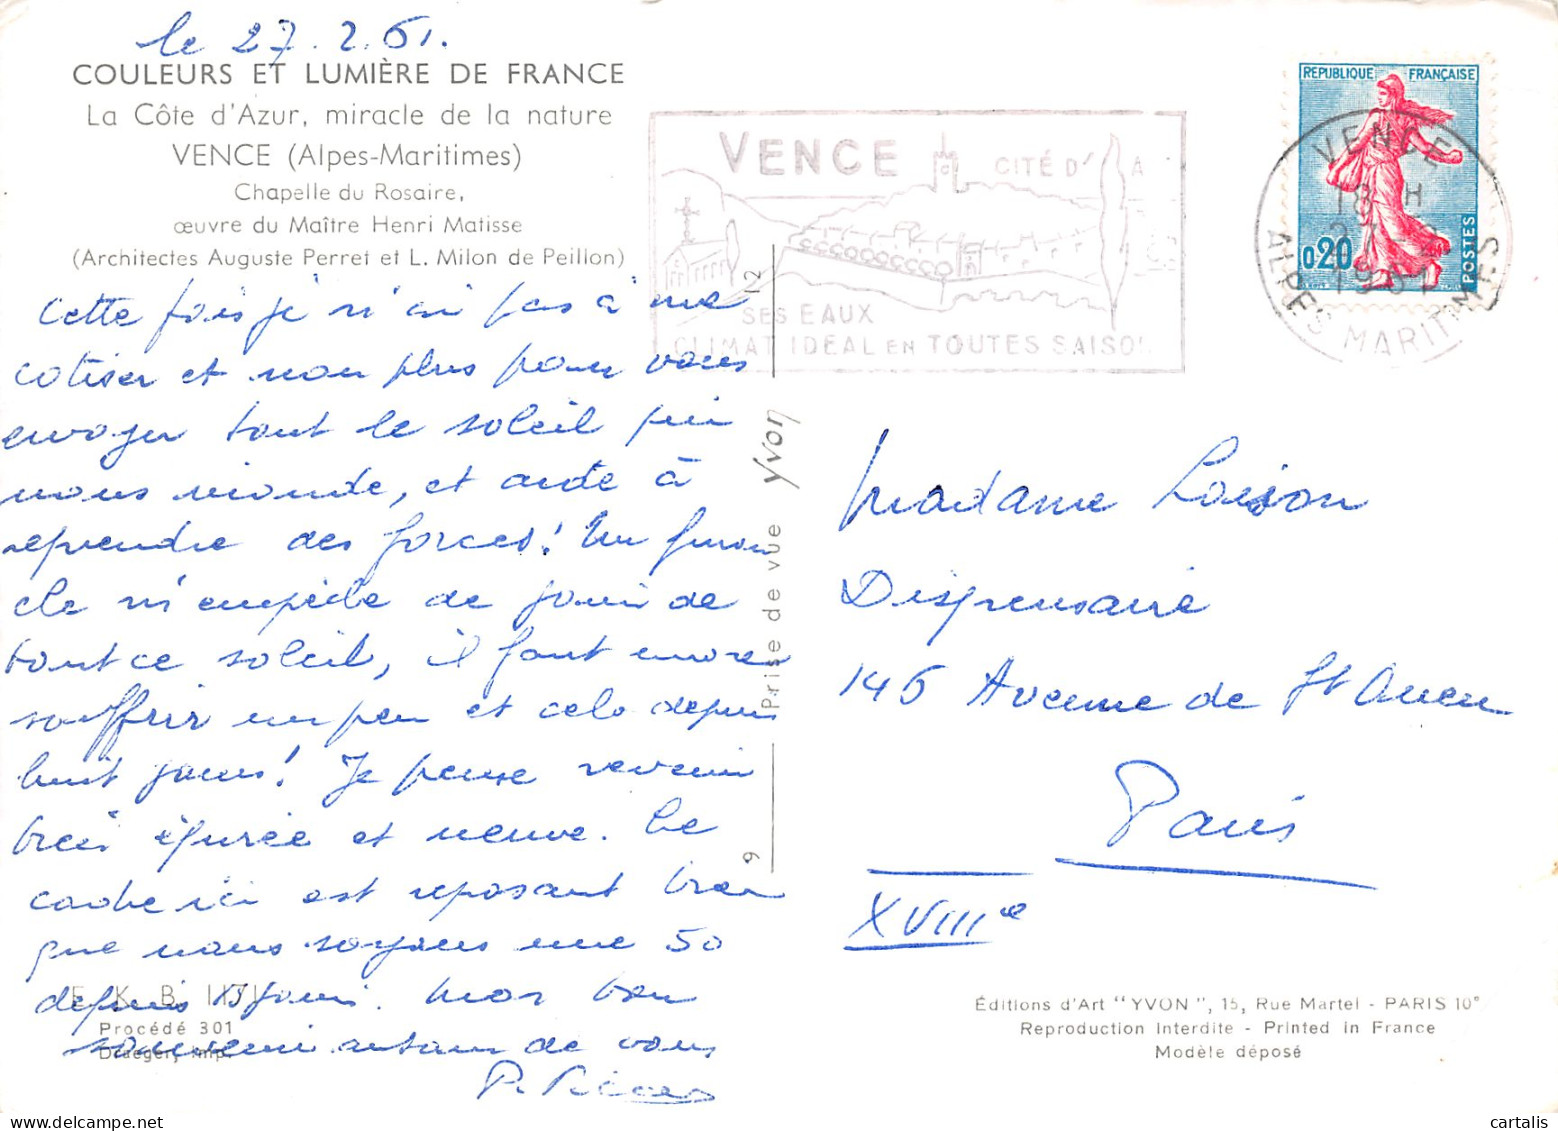 le 27.2.61.
COULEURS ET LUMIÈRE DE FRANCE
La Côte d'Azur, miracle de la nature
VENCE (Alpes-Maritimes)
Chapelle du Rosaire,
œuvre du Maître Henri Matisse
(Architectes Auguste Perret et L. Milon de Peillon)
Cette fois je n'ai pas à me
cotiser et non plus pour vous
envoyer tout le soleil qui
nous inonde, et aide à
reprendre des forces! Un furon
cle m'empêche de jouir de
tout ce soleil, il faut encore
souffrir un peu et cela depuis
huit jours! Je pense revenir
très épurée et neuve. Le
cadre ici est reposant bien
que nous soyons une 50
depuis 15 jours. Mon bon
souvenir autour de vous
P.
VENCE
CITÉ D'A
SES EAUX
CLIMAT IDÉAL EN TOUTES SAISO
12
Yvon
Prise de vue
9
RÉPUBLIQUE FRANÇAISE
0,20
POSTES
VENCE
18 H
1961
ALPES MARITIMES
Madame Loison
Dispensaire
145 Avenue de St Ouen
Paris
XVIIIe
E K B
Procédé 301
Draeger, imp.
Éditions d'Art "YVON", 15, Rue Martel - PARIS 10e
Reproduction Interdite - Printed in France
Modèle déposé
cartalis